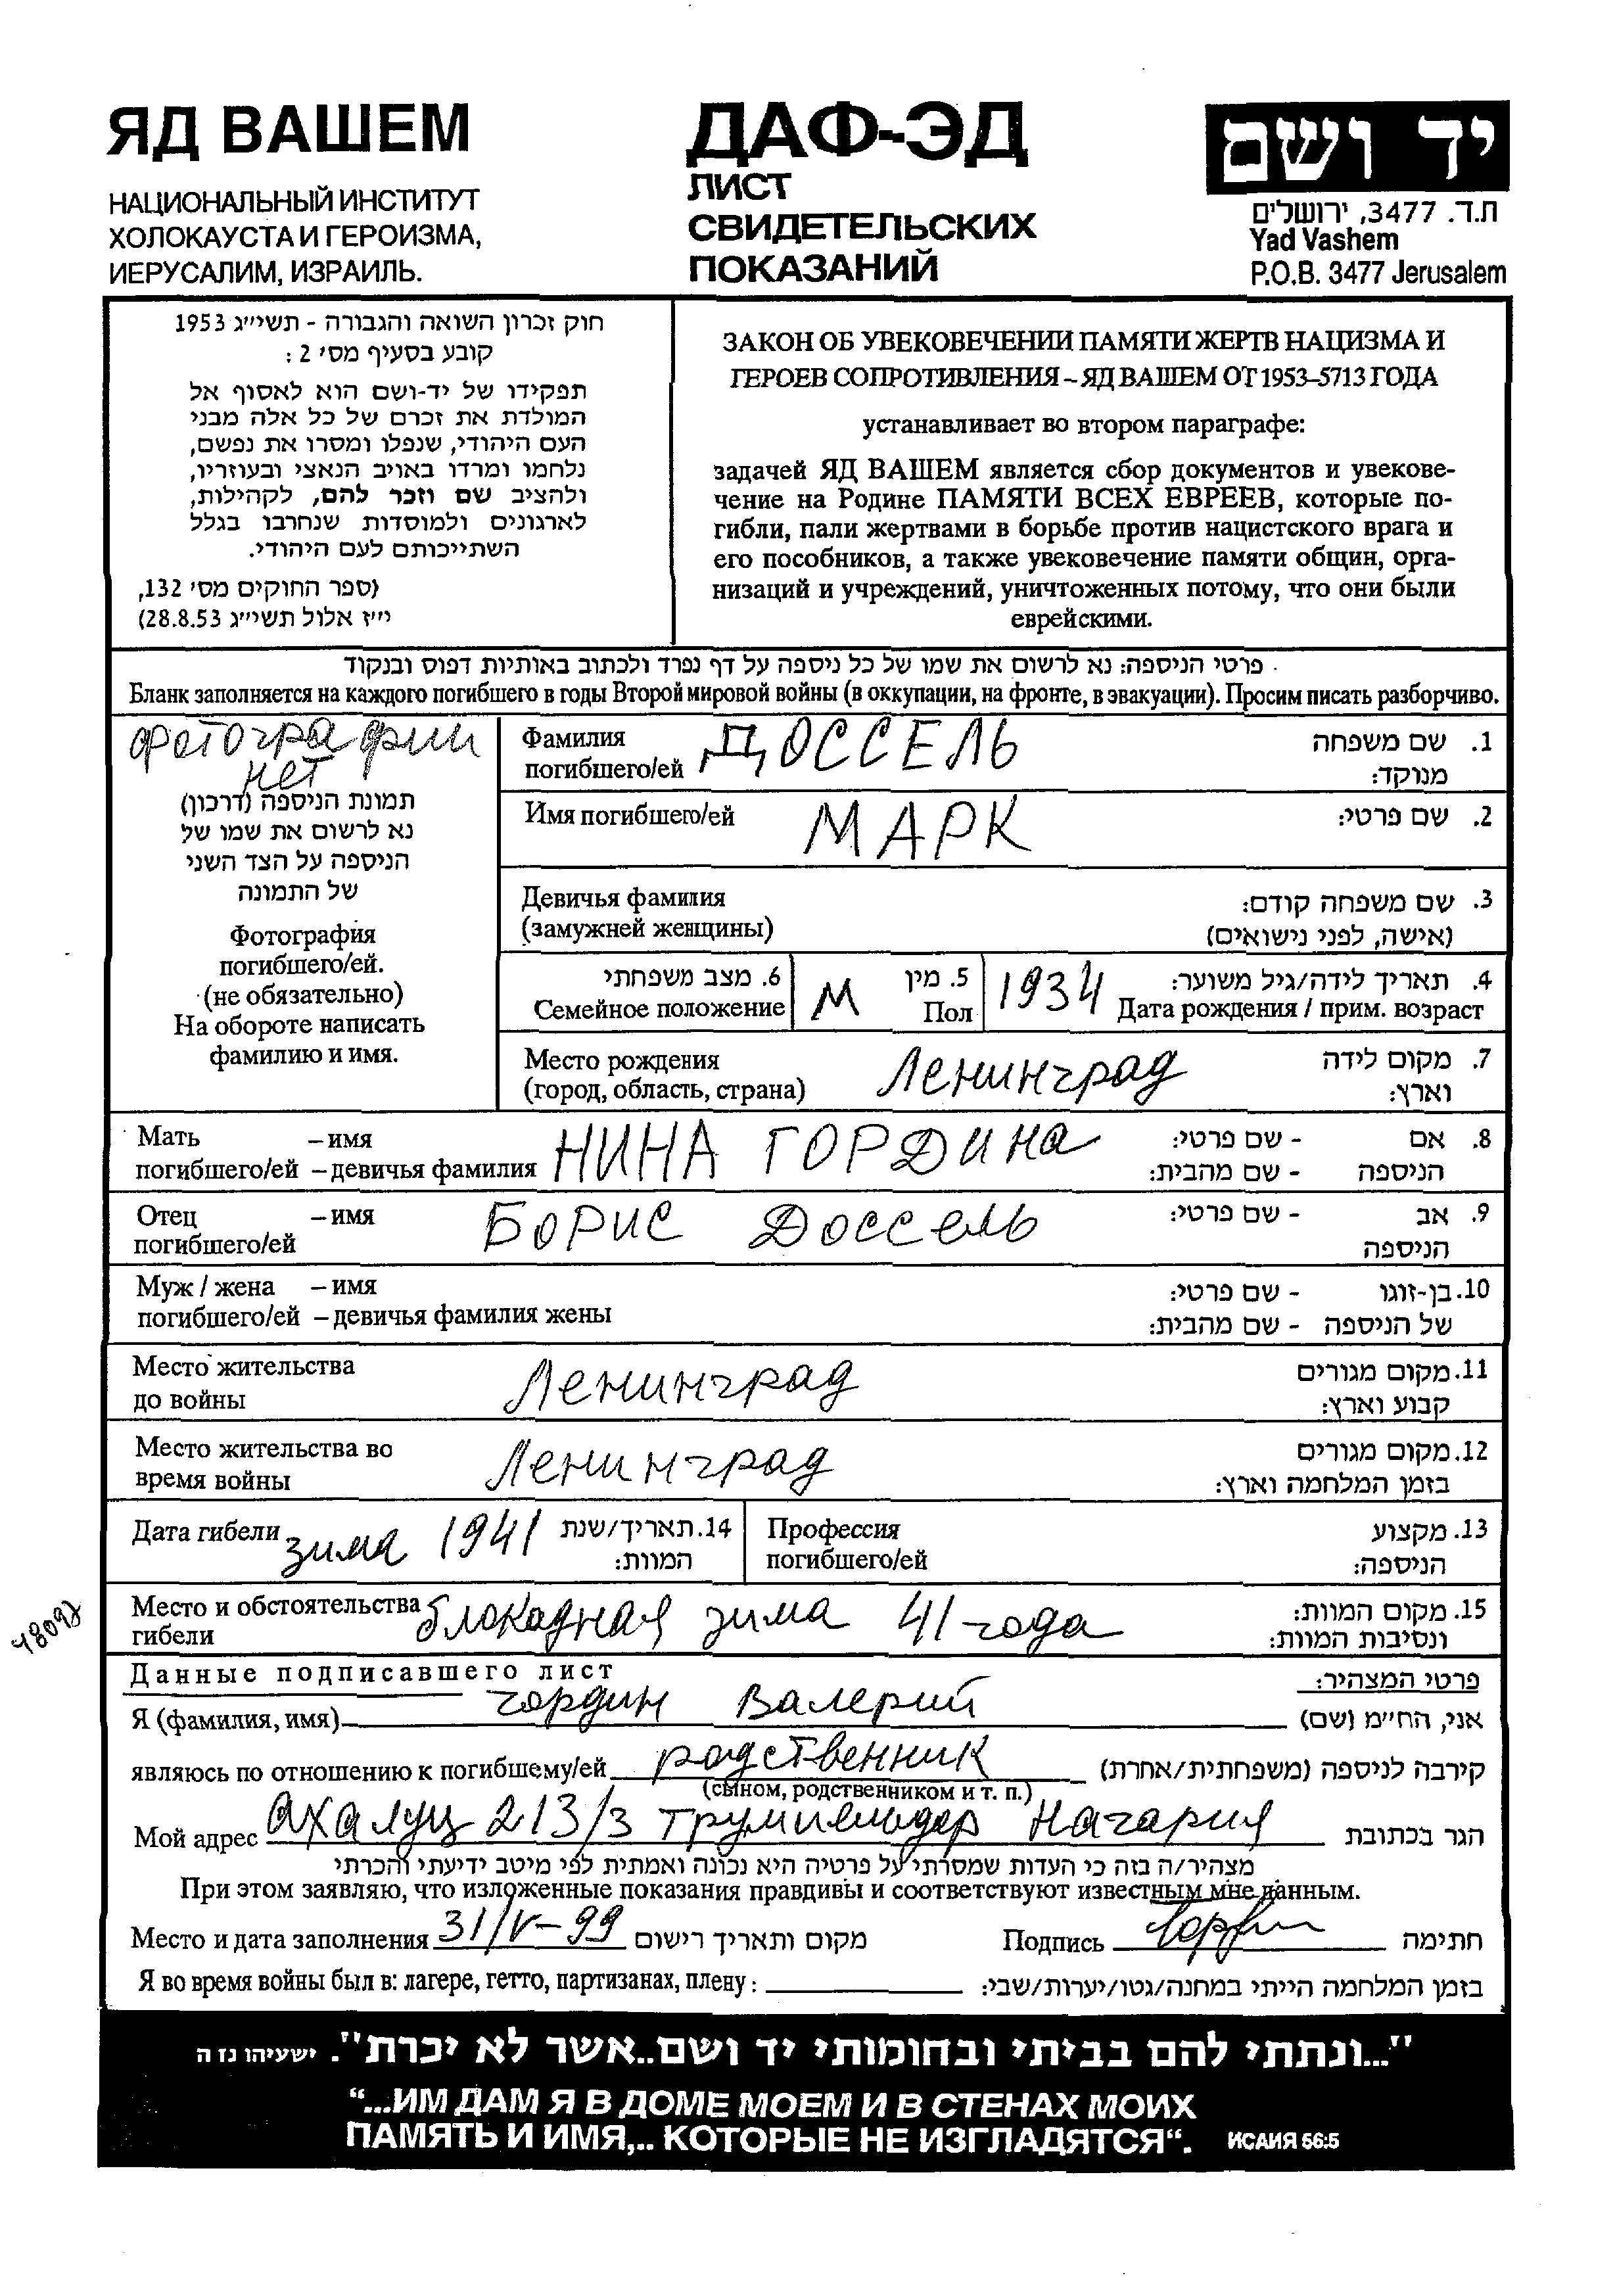 ЯД ВАШЕМ
НАЦИОНАЛЬНЫЙ ИНСТИТУТ
ХОЛОКАУСТА И ГЕРОИЗМА,
ИЕРУСАЛИМ, ИЗРАИЛЬ.
ДАФ-ЭД
ЛИСТ
СВИДЕТЕЛЬСКИХ
ПОКАЗАНИЙ
יד ושם
ת.ד. 3477, ירושלים
Yad Vashem
P.O.B. 3477 Jerusalem
חוק זכרון השואה והגבורה - תשי״ג 1953
קובע בסעיף מס׳ 2 :
תפקידו של יד-ושם הוא לאסוף אל
המולדת את זכרם של כל אלה מבני
העם היהודי, שנפלו ומסרו את נפשם,
נלחמו ומרדו באויב הנאצי ובעוזריו,
ולהציב שם וזכר להם, לקהילות,
לארגונים ולמוסדות שנחרבו בגלל
השתייכותם לעם היהודי.
(ספר החוקים מס׳ 132,
י״ז אלול תשי״ג 28.8.53)
ЗАКОН ОБ УВЕКОВЕЧЕНИИ ПАМЯТИ ЖЕРТВ НАЦИЗМА И
ГЕРОЕВ СОПРОТИВЛЕНИЯ – ЯД ВАШЕМ ОТ 1953–5713 ГОДА
устанавливает во втором параграфе:
задачей ЯД ВАШЕМ является сбор документов и увекове-
чение на Родине ПАМЯТИ ВСЕХ ЕВРЕЕВ, которые по-
гибли, пали жертвами в борьбе против нацистского врага и
его пособников, а также увековечение памяти общин, орга-
низаций и учреждений, уничтоженных потому, что они были
еврейскими.
פרטי הניספה: נא לרשום את שמו של כל ניספה על דף נפרד ולכתוב באותיות דפוס ובנקוד
Бланк заполняется на каждого погибшего в годы Второй мировой войны (в оккупации, на фронте, в эвакуации). Просим писать разборчиво.
фотографии
нет
תמונת הניספה (דרכון)
נא לרשום את שמו של
הניספה על הצד השני
של התמונה
Фотография
погибшего/ей.
(не обязательно)
На обороте написать
фамилию и имя.
Фамилия ДОССЕЛЬ 1. שם משפחה
погибшего/ей מנוקד:
Имя погибшего/ей МАРК 2. שם פרטי:
Девичья фамилия 3. שם משפחה קודם:
(замужней женщины) (אישה, לפני נישואים)
6. מצב משפחתי М 5. מין 1934 4. תאריך לידה/גיל משוער:
Семейное положение Пол Дата рождения / прим. возраст
Место рождения Ленинград 7. מקום לידה
(город, область, страна) וארץ:
Мать – имя НИНА ГОРДИНА 8. אם - שם פרטי:
погибшего/ей – девичья фамилия הניספה - שם מהבית:
Отец – имя БОРИС ДОССЕЛЬ 9. אב - שם פרטי:
погибшего/ей הניספה
Муж / жена – имя 10. בן-זוגו - שם פרטי:
погибшего/ей – девичья фамилия жены של הניספה - שם מהבית:
Место жительства Ленинград 11. מקום מגורים
до войны קבוע וארץ:
Место жительства во Ленинград 12. מקום מגורים
время войны בזמן המלחמה וארץ:
Дата гибели зима 1941 14. תאריך/שנת Профессия 13. מקצוע
המוות: погибшего/ей הניספה:
Место и обстоятельства блокадная зима 41 года 15. מקום המוות:
гибели ונסיבות המוות:
Данные подписавшего лист פרטי המצהיר:
Я (фамилия, имя) Гордин Валерий אני, הח״מ (שם)
являюсь по отношению к погибшему/ей родственник קירבה לניספה (משפחתית/אחרת)
(сыном, родственником и т. п.)
Мой адрес Ахалуц 213/3 Трумпельдор Нагария הגר בכתובת
מצהיר/ה בזה כי העדות שמסרתי על פרטיה היא נכונה ואמתית לפי מיטב ידיעתי והכרתי
При этом заявляю, что изложенные показания правдивы и соответствуют известным мне данным.
Место и дата заполнения 31/V–99 מקום ותאריך רישום Подпись חתימה
Я во время войны был в: лагере, гетто, партизанах, плену: בזמן המלחמה הייתי במחנה/גטו/יערות/שבי:
"...ונתתי להם בביתי ובחומותי יד ושם..אשר לא יכרת". ישעיהו נז ה
“...ИМ ДАМ Я В ДОМЕ МОЕМ И В СТЕНАХ МОИХ
ПАМЯТЬ И ИМЯ,.. КОТОРЫЕ НЕ ИЗГЛАДЯТСЯ“. ИСАИЯ 56:5